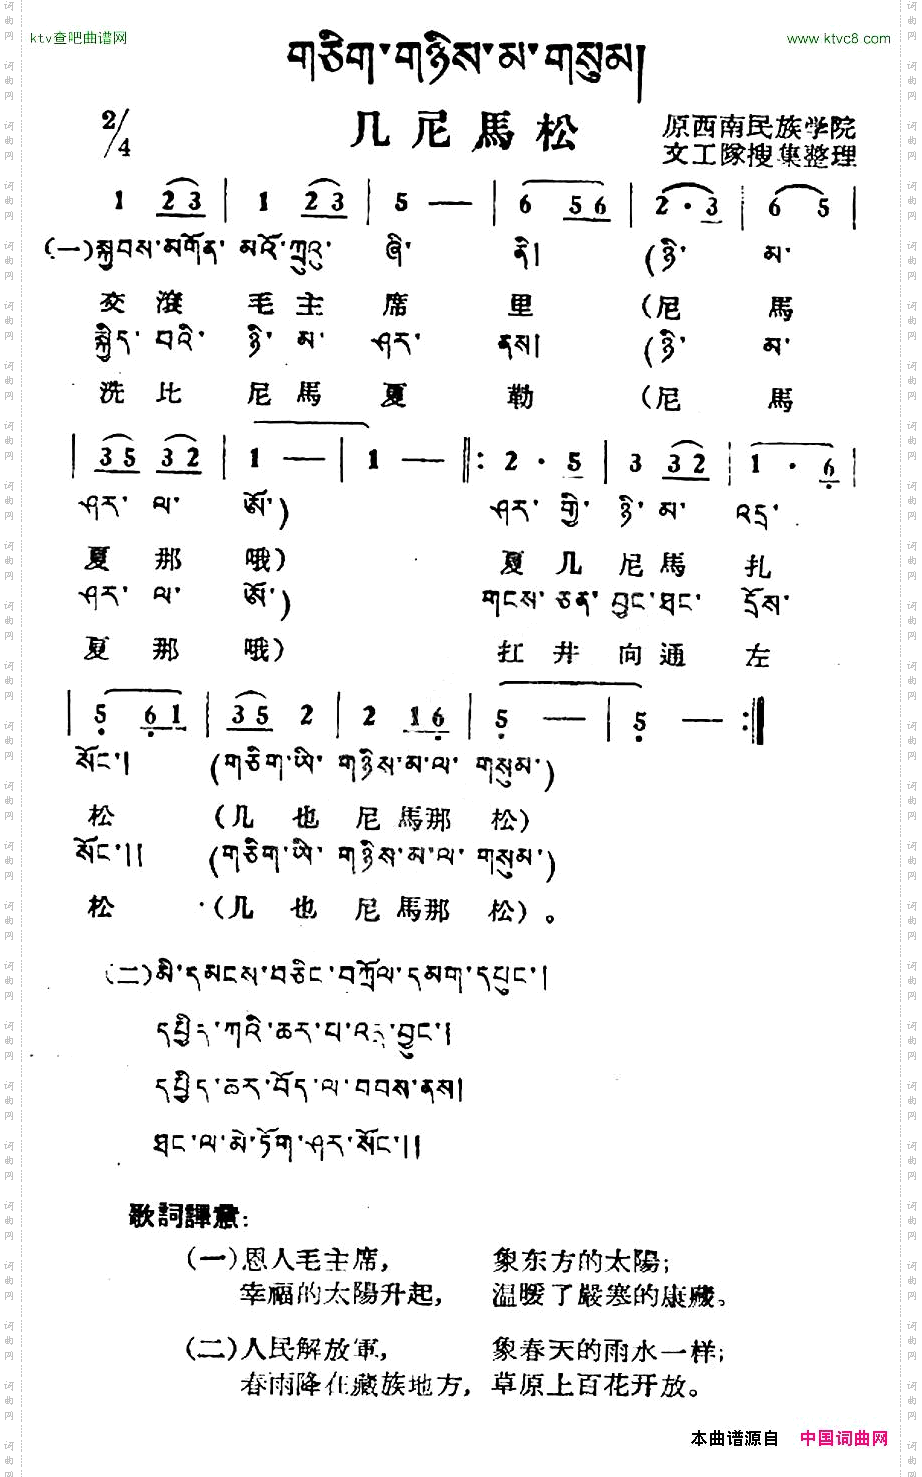 ktv查吧曲谱网
www.ktvc8.com
གཅིག་གཉིས་མ་གསུམ།
2/4
几尼馬松
原西南民族学院
文工隊搜集整理
1 23 | 1 23 | 5 — | 6 56 | 2 · 3 | 6 5 |
(一)སྐྱབས་མགོན་ མའོ་ཀྲུའུ་ ཞི་ ནི། (ཉི་ མ་
交滾 毛主 席 里 (尼 馬
སྐྱིད་ བའི་ ཉི་ མ་ ཤར་ ནས། (ཉི་ མ་
洗比 尼馬 夏 勒 (尼 馬
| 35 32 | 1 — | 1 — ‖: 2 · 5 | 3 32 | 1 · 6 |
ཤར་ ལ་ ཨོ་) ཤར་ གྱི་ ཉི་ མ་ འདྲ་
夏 那 哦) 夏几 尼馬 扎
ཤར་ ལ་ ཨོ་) གངས་ ཅན་ བྱང་ཐང་ དྲོས་
夏 那 哦) 扛井 向通 左
| 5 61 | 35 2 | 2 16 | 5 — | 5 — :‖
སོང་། (གཅིག་ཡི་ གཉིས་མ་ལ་ གསུམ་)
松 (几 也 尼馬那 松)
སོང་།། (གཅིག་ཡི་ གཉིས་མ་ལ་ གསུམ་)
松 (几 也 尼馬那 松)。
(二)མི་དམངས་བཅིང་བཀྲོལ་དམག་དཔུང་།
དཔྱིད་ཀའི་ཆར་པ་འདྲ་བྱུང་།
དཔྱིད་ཆར་བོད་ལ་བབས་ནས།
ཐང་ལ་མེ་ཏོག་ཤར་སོང་།།
歌詞譯意:
(一)恩人毛主席, 象东方的太陽;
幸福的太陽升起, 温暖了嚴寒的康藏。
(二)人民解放軍, 象春天的雨水一样;
春雨降在藏族地方, 草原上百花开放。
本曲谱源自 中国词曲网